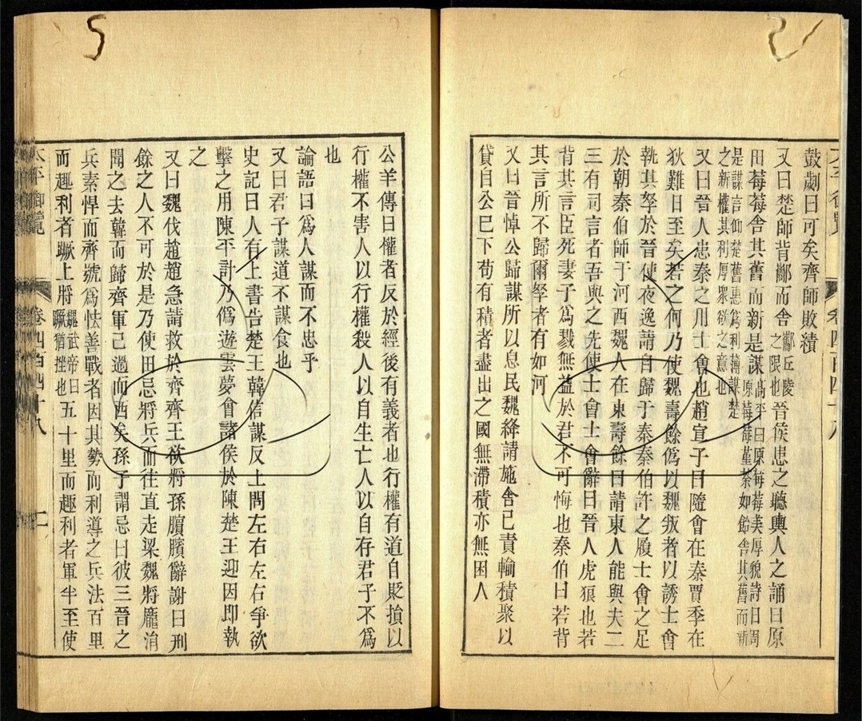 鼓劌曰可矣齊師敗績
又曰楚師背酅而舍酅丘陵之限也晉侯患之聽輿人之誦曰原
田莓莓舍其舊而新是謀高平曰原莓莓美厚貌詩曰周原莓莓堇荼如飴舍其舊而新
是謀言仰楚舊惠爲利薄謀楚之新權其利厚衆欲之意也
又曰晉人患秦之用士會也趙宣子曰隨會在秦賈季在
狄難日至矣若之何乃使魏壽餘僞以魏叛者以誘士會
執其孥於晉使夜逸請自歸于秦秦伯許之履士會之足
於朝秦伯師于河西魏人在東壽餘曰請東人能與夫二
三有司言者吾與之先使士會士會辭曰晉人虎狼也若
背其言臣死妻子爲戮無益於君不可悔也秦伯曰若背
其言所不歸爾孥者有如河
又曰晉悼公歸謀所以息民魏絳請施舍已責輸積聚以
貸自公已下苟有積者盡出之國無滯積亦無困人
公羊傳曰權者反於經後有義者也行權有道自貶損以
行權不害人以行權殺人以自生亡人以自存君子不爲
也
論語曰爲人謀而不忠乎
又曰君子謀道不謀食也
史記曰人有上書告楚王韓信謀反上問左右左右爭欲
擊之用陳平計乃爲遊雲夢會諸侯於陳楚王迎因即執
之
又曰魏伐趙趙急請救於齊齊王欲將孫臏臏辭謝曰刑
餘之人不可於是乃使田忌將兵而往直走梁魏將龐涓
聞之去韓而歸齊軍已過而西矣孫子謂忌曰彼三晉之
兵素悍而齊號爲怯善戰者因其勢而利導之兵法百里
而趣利者蹶上將魏武帝曰蹶猶挫也五十里而趣利者軍半至使
太平御覽 卷四百四十八 二